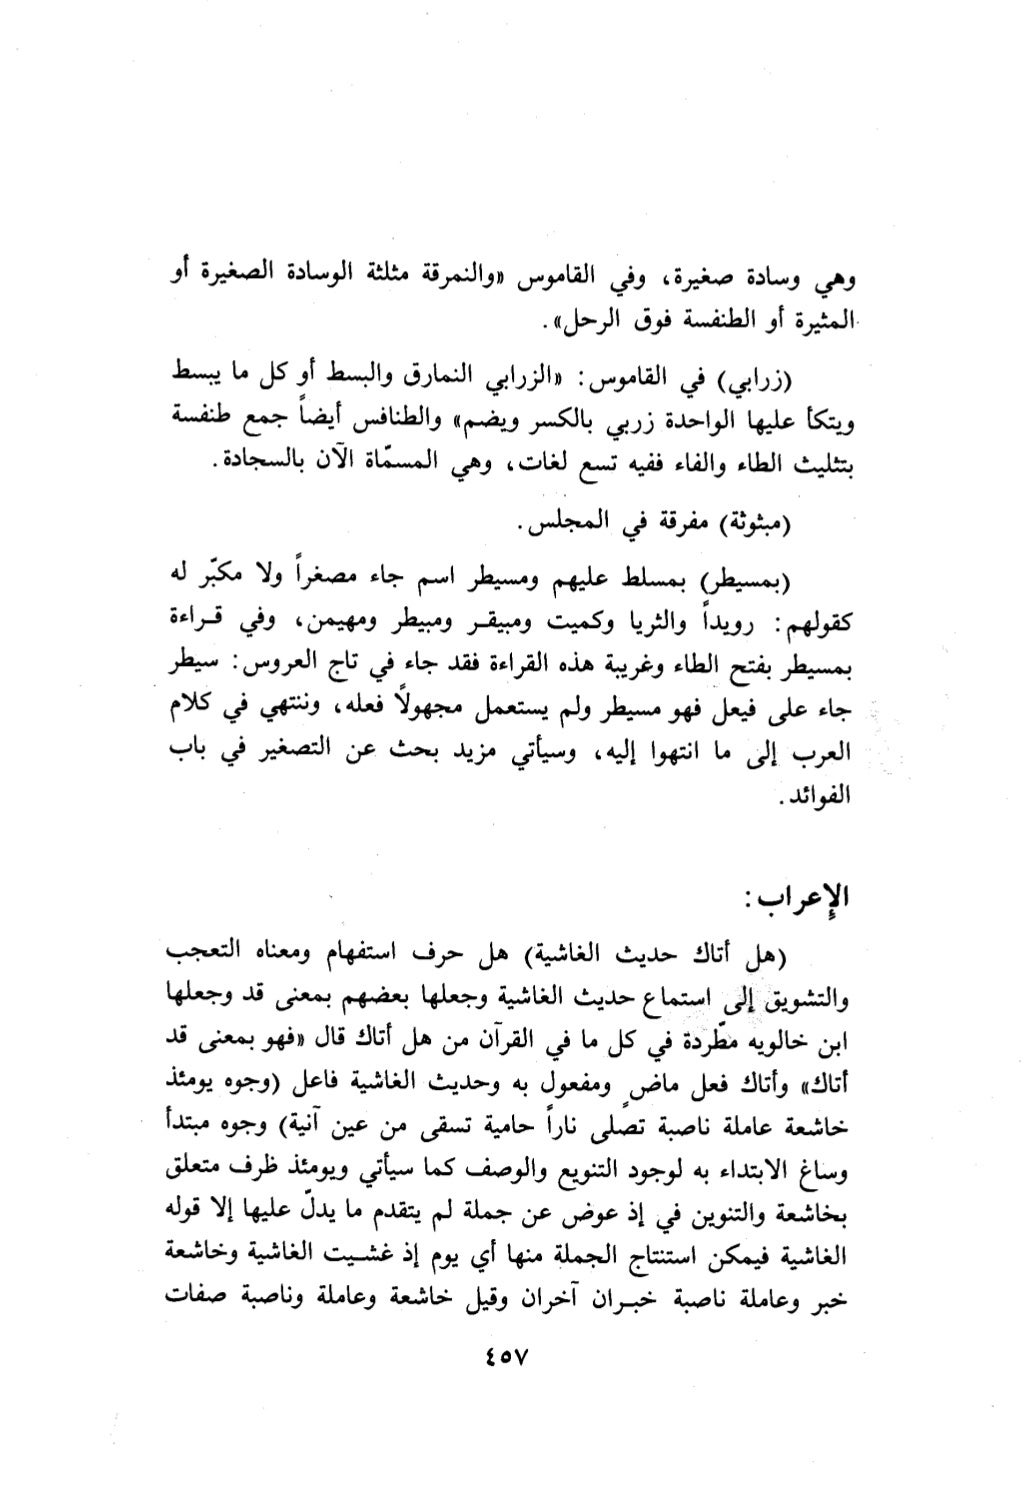 وهي وسادة صغيرة، وفي القاموس «والنمرقة مثلثة الوسادة الصغيرة أو
المثيرة أو الطنفسة فوق الرحل».
(زرابي) في القاموس: «الزرابي النمارق والبسط أو كل ما يبسط
ويتكأ عليها الواحدة زربي بالكسر ويضم» والطنافس أيضاً جمع طنفسة
بتثليث الطاء والفاء ففيه تسع لغات، وهي المسمّاة الآن بالسجادة.
(مبثوثة) مفرقة في المجلس.
(بمسيطر) بمسلط عليهم ومسيطر اسم جاء مصغراً ولا مكبّر له
كقولهم: رويداً والثريا وكميت ومبيقر ومبيطر ومهيمن، وفي قراءة
بمسيطر بفتح الطاء وغريبة هذه القراءة فقد جاء في تاج العروس: سيطر
جاء على فيعل فهو مسيطر ولم يستعمل مجهولاً فعله، وننتهي في كلام
العرب إلى ما انتهوا إليه، وسيأتي مزيد بحث عن التصغير في باب
الفوائد.
الإعراب:
(هل أتاك حديث الغاشية) هل حرف استفهام ومعناه التعجب
والتشويق إلى استماع حديث الغاشية وجعلها بعضهم بمعنى قد وجعلها
ابن خالويه مطّردة في كل ما في القرآن من هل أتاك قال «فهو بمعنى قد
أتاك» وأتاك فعل ماضٍ ومفعول به وحديث الغاشية فاعل (وجوه يومئذ
خاشعة عاملة ناصبة تصلى ناراً حامية تسقى من عين آنية) وجوه مبتدأ
وساغ الابتداء به لوجود التنويع والوصف كما سيأتي ويومئذ ظرف متعلق
بخاشعة والتنوين في إذ عوض عن جملة لم يتقدم ما يدلّ عليها إلا قوله
الغاشية فيمكن استنتاج الجملة منها أي يوم إذ غشيت الغاشية وخاشعة
خبر وعاملة ناصبة خبران آخران وقيل خاشعة وعاملة وناصبة صفات
٤٥٧